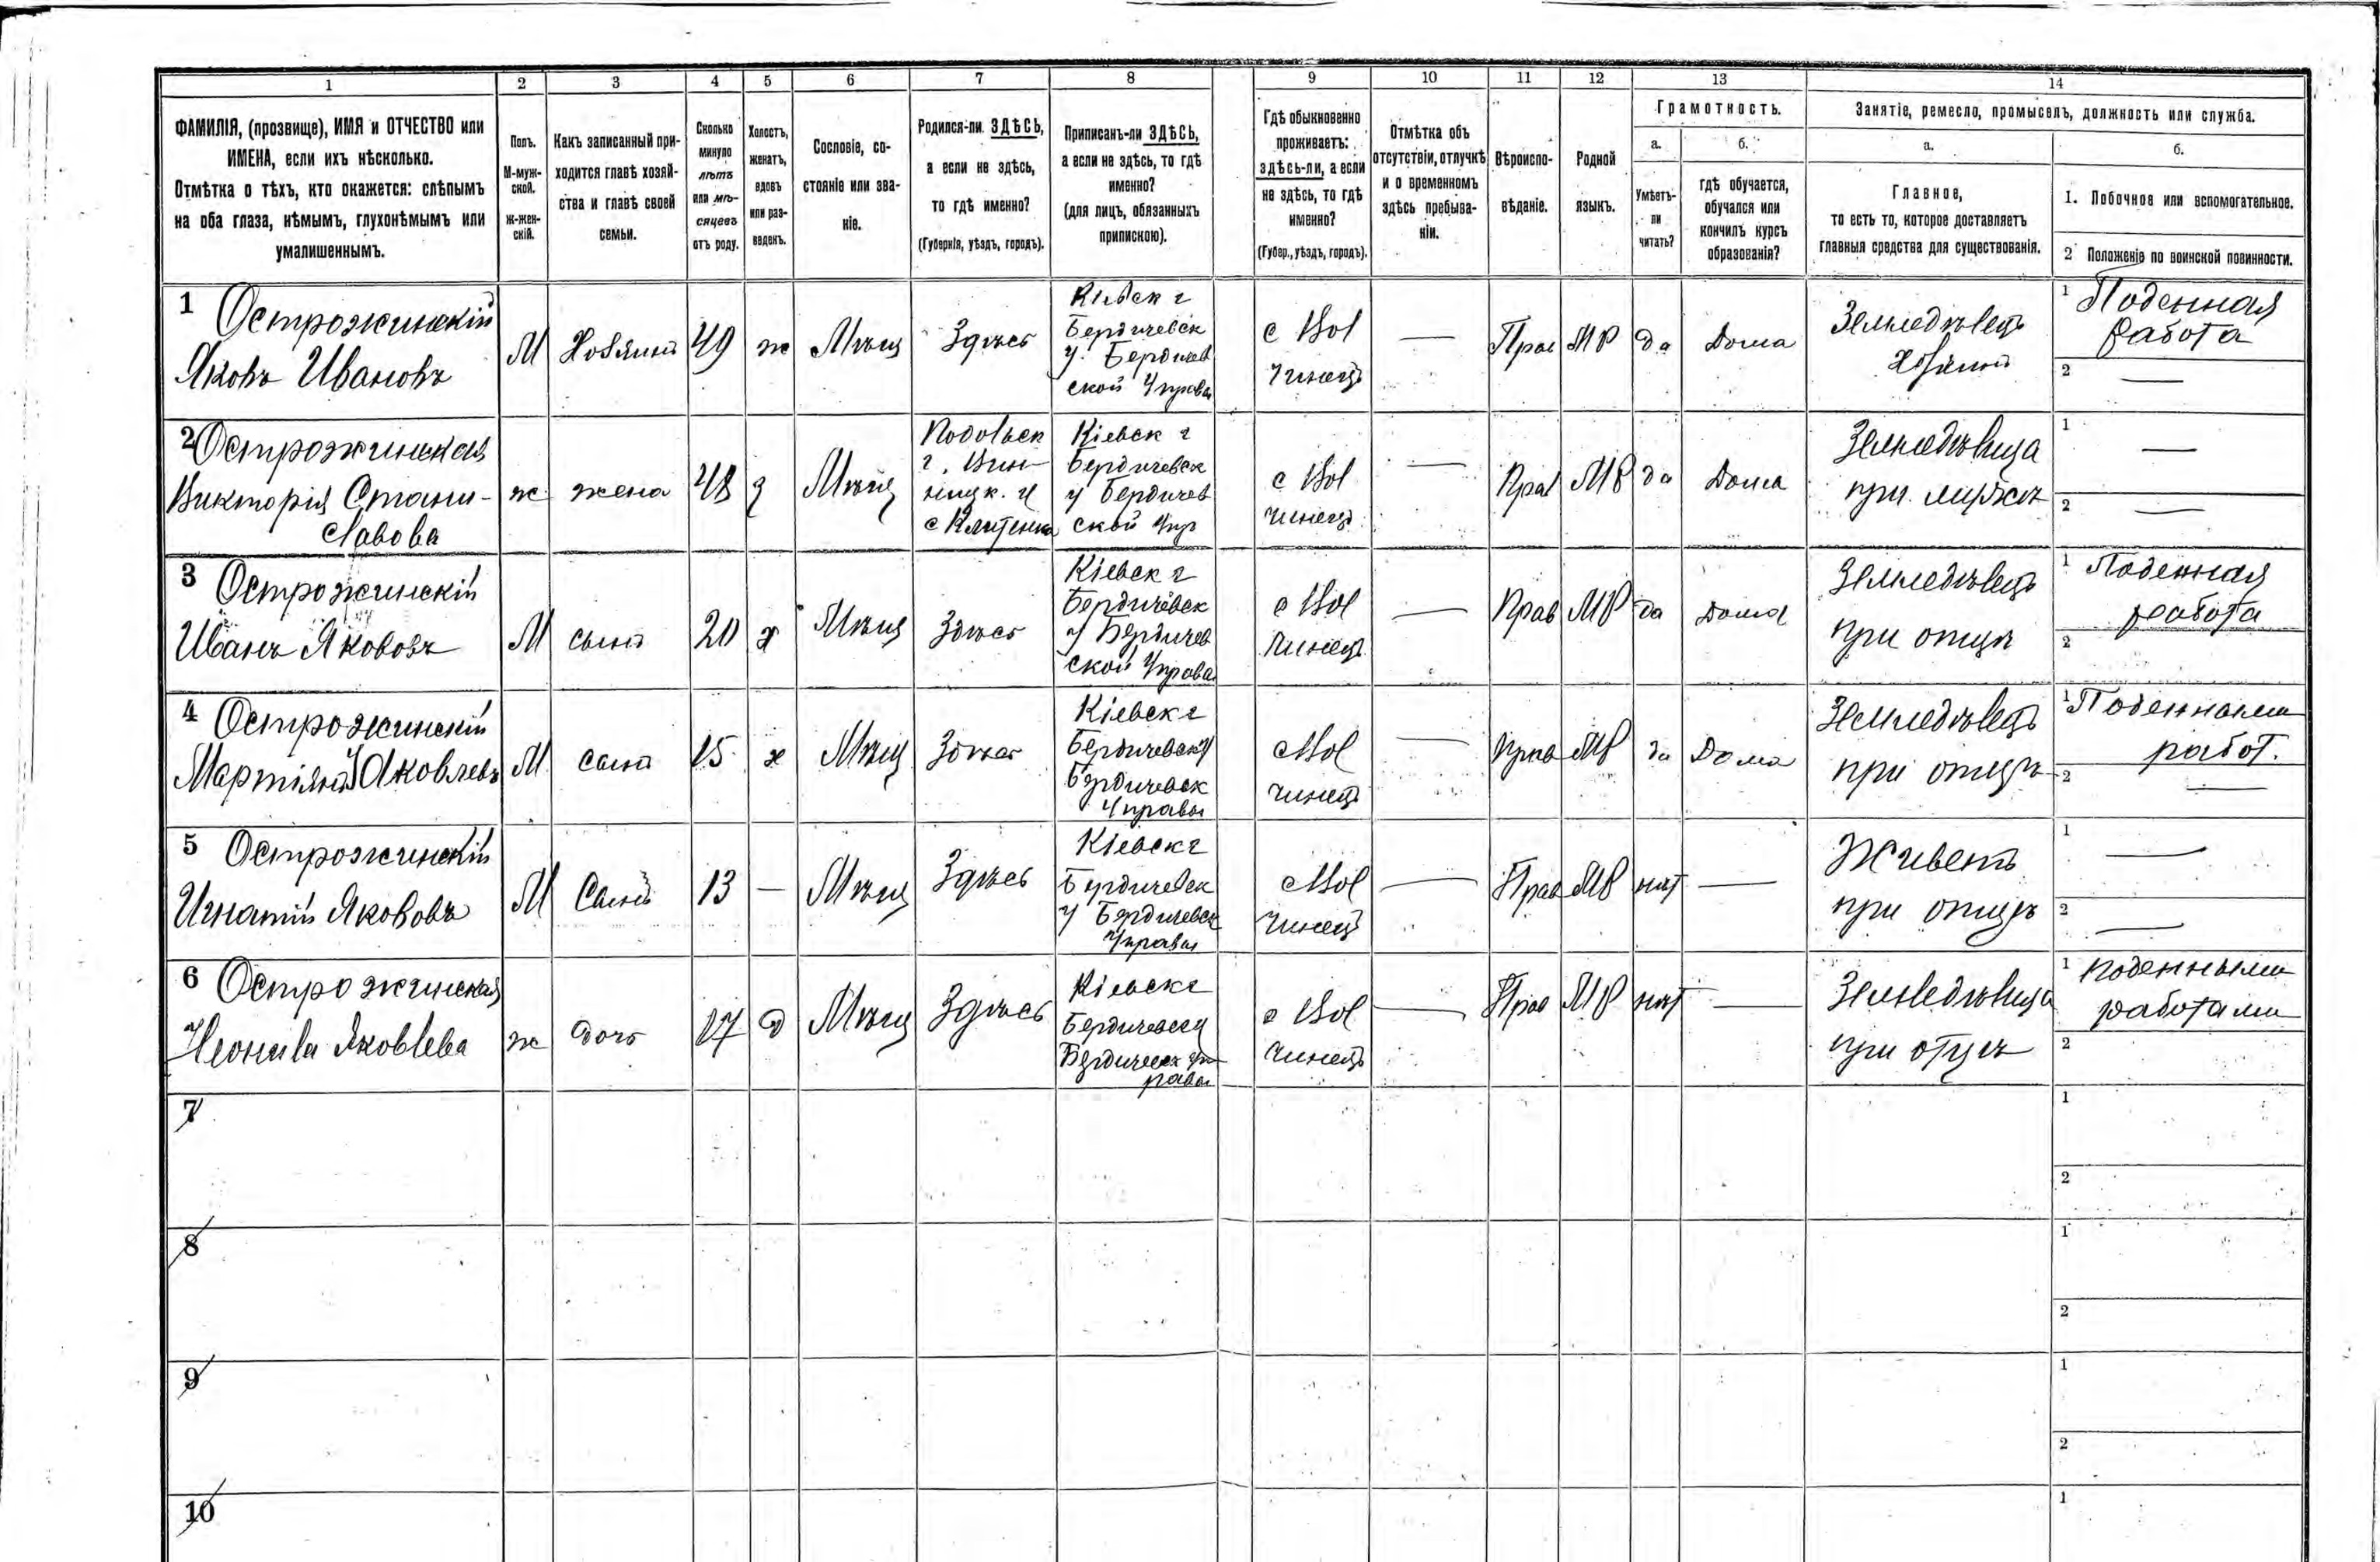 1 2 3 4 5 6 7 8 9 10 11 12 13 14
ФАМИЛІЯ, (прозвище), ИМЯ и ОТЧЕСТВО или
ИМЕНА, если ихъ нѣсколько.
Отмѣтка о тѣхъ, кто окажется: слѣпымъ
на оба глаза, нѣмымъ, глухонѣмымъ или
умалишеннымъ.
Полъ.
М-муж-
ской.
Ж-жен-
скій.
Какъ записанный при-
ходится главѣ хозяй-
ства и главѣ своей
семьи.
Сколько
минуло
лѣтъ
или мѣ-
сяцевъ
отъ роду.
Холостъ,
женатъ,
вдовъ
или раз-
веденъ.
Сословіе, со-
стояніе или зва-
ніе.
Родился-ли ЗДѢСЬ,
а если не здѣсь,
то гдѣ именно?
(Губернія, уѣздъ, городъ).
Приписанъ-ли ЗДѢСЬ,
а если не здѣсь, то гдѣ
именно?
(для лицъ, обязанныхъ
припискою).
Гдѣ обыкновенно
проживаетъ:
здѣсь-ли, а если
не здѣсь, то гдѣ
именно?
(Губер., уѣздъ, городъ).
Отмѣтка объ
отсутствіи, отлучкѣ
и о временномъ
здѣсь пребыва-
ніи.
Вѣроиспо-
вѣданіе.
Родной
языкъ.
Грамотность.
а.
Умѣетъ-
ли
читать?
б.
гдѣ обучается,
обучался или
кончилъ курсъ
образованія?
Занятіе, ремесло, промыселъ, должность или служба.
а.
Главное,
то есть то, которое доставляетъ
главныя средства для существованія.
б.
1. Побочное или вспомогательное.
2 Положеніе по воинской повинности.
1 Острожинскій
Яковъ Ивановъ
М
Хозяинъ
49
ж
Мѣщ
Здѣсь
Кіевск г
Бердичевск
у. Бердичев
ской Управы
с Вол
чинецъ
—
Прав
МР
да
Дома
Земледѣлецъ
хозяинъ
1 Поденная
работа
2 —
2 Острожинская
Викторія Стани-
славова
ж
жена
48
з
Мѣщ
Подольск
г. Вин-
ницк. у
с
Кіевск г
Бердичевск
у Бердичев
ской Упр
с Вол
чинецъ
—
Прав
МР
да
Дома
Земледѣлица
при мужѣ
1 —
2 —
3 Острожинскій
Иванъ Якововъ
М
сынъ
20
х
Мѣщ
Здѣсь
Кіевск г
Бердичевск
у Бердичев
ской Управы
с Вол
чинецъ
—
Прав
МР
да
Дома
Земледѣлецъ
при отцѣ
1 Поденная
работа
2
4 Острожинскій
Мартіянъ Яковлевъ
М
сынъ
15
х
Мѣщ
Здѣсь
Кіевск г
Бердичевск у
Бердичевск
Управы
с Вол
чинецъ
—
Прав
МР
да
Дома
Земледѣлецъ
при отцѣ
1 Поденными
работ.
2 —
5 Острожинскій
Игнатій Якововъ
М
Сынъ
13
—
Мѣщ
Здѣсь
Кіевск г
Бердичевск
у Бердичевск
Управы
с Вол
чинецъ
—
Прав
МР
нѣт
—
Живетъ
при отцѣ
1 —
2 —
6 Острожинская
Неонила Яковлева
ж
дочь
17
д
Мѣщ
Здѣсь
Кіевск г
Бердичевск у
Бердичевск Уп
равы
с Вол
чинецъ
—
Прав
МР
нѣт
—
Земледѣлица
при отцѣ
1 поденными
работами
2
7
1
2
8
1
2
9
1
2
10
1